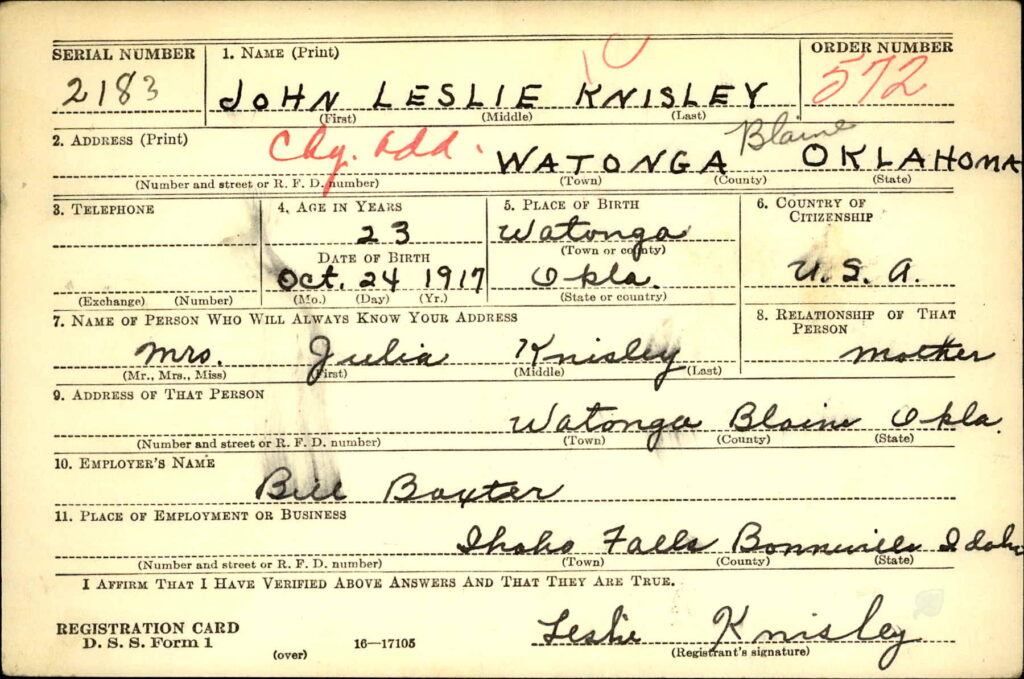 SERIAL NUMBER 1. NAME (Print) ORDER NUMBER
2183 JOHN LESLIE KNISLEY 572
(First) (Middle) (Last)
2. ADDRESS (Print)
Chg. add. WATONGA Blaine OKLAHOMA
(Number and street or R. F. D. number) (Town) (County) (State)
3. TELEPHONE 4. AGE IN YEARS 5. PLACE OF BIRTH 6. COUNTRY OF CITIZENSHIP
23 Watonga
(Town or county)
DATE OF BIRTH
Oct. 24 1917 Okla. U. S. A.
(Exchange) (Number) (Mo.) (Day) (Yr.) (State or country)
7. NAME OF PERSON WHO WILL ALWAYS KNOW YOUR ADDRESS 8. RELATIONSHIP OF THAT PERSON
Mrs. Julia Knisley mother
(Mr., Mrs., Miss) (First) (Middle) (Last)
9. ADDRESS OF THAT PERSON
Watonga Blain Okla.
(Number and street or R. F. D. number) (Town) (County) (State)
10. EMPLOYER'S NAME
Bill Baxter
11. PLACE OF EMPLOYMENT OR BUSINESS
Ihaho Falls Bonneville Idaho
(Number and street or R. F. D. number) (Town) (County) (State)
I AFFIRM THAT I HAVE VERIFIED ABOVE ANSWERS AND THAT THEY ARE TRUE.
REGISTRATION CARD
D. S. S. Form 1 16—17105 Leslie Knisley
(over) (Registrant's signature)